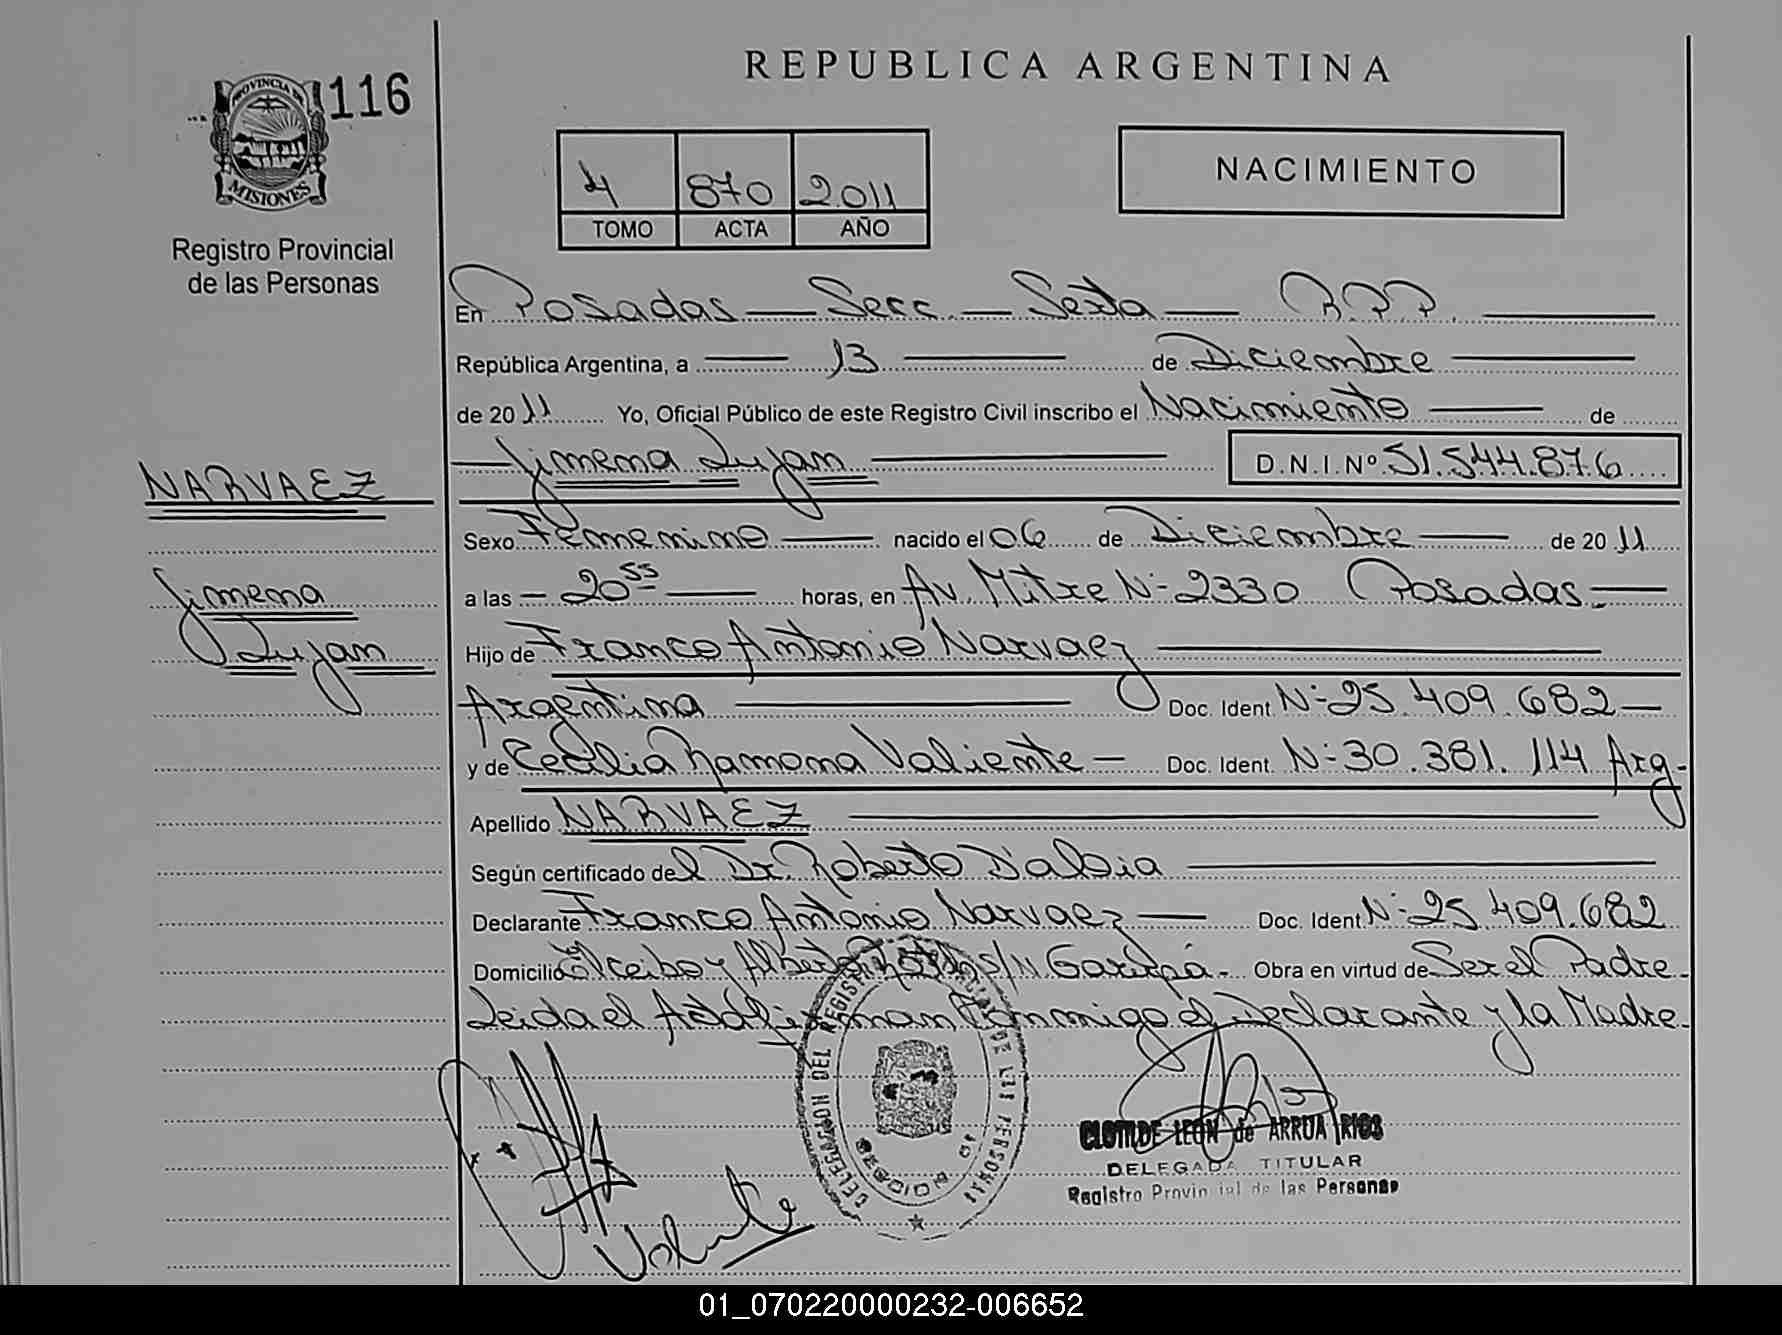 REPUBLICA ARGENTINA
PROVINCIA DE
MISIONES
116
Registro Provincial
de las Personas
4 870 2011
TOMO ACTA AÑO
NACIMIENTO
En Posadas — Secc. — Sexta — R.P.P. —
República Argentina, a — 13 — de Diciembre —
de 2011 Yo, Oficial Público de este Registro Civil inscribo el Nacimiento — de
— Jimena Lujan — D.N.I.Nº 51.544.876
NARVAEZ
Jimena
Lujan
Sexo Femenino — nacido el 06 de Diciembre — de 2011
a las — 20 55 — horas, en Av. Mitre Nº 2330 Posadas. —
Hijo de Franco Antonio Narvaez —
Argentina — Doc. Ident. Nº 25.409.682 —
y de Cecilia Ramona Valiente — Doc. Ident. Nº 30.381.114 Arg-
Apellido NARVAEZ —
Según certificado del Dr. Roberto D'albia —
Declarante Franco Antonio Narvaez — Doc. Ident. Nº 25.409.682
Domicilio Elceibo y Alberto s/N Garupá. Obra en virtud de Ser el Padre.
Leida el Acta firman Conmigo el Declarante y la Madre.
DELEGACION DEL REGISTRO PROVINCIAL DE LAS PERSONAS
SECCION 6º
Valiente
CLOTILDE LEON de ARRUA RIOS
DELEGADA TITULAR
Registro Provincial de las Personas
01_070220000232-006652